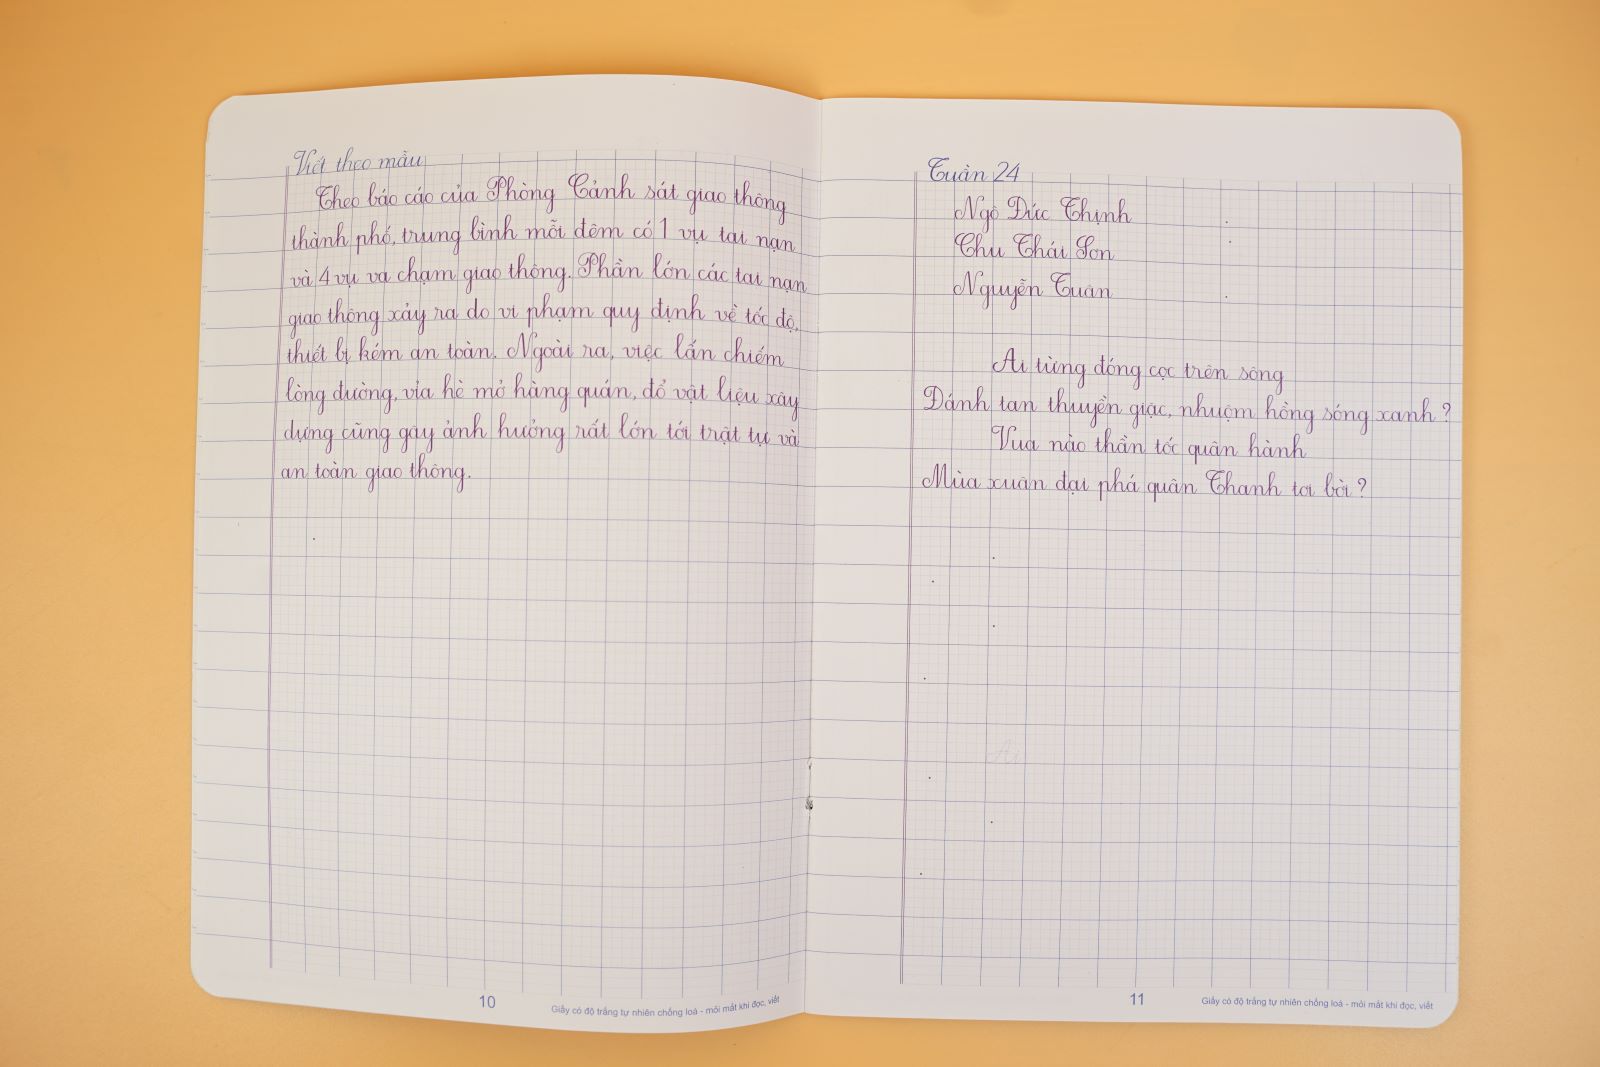 Viết theo mẫu
Theo báo cáo của Phòng Cảnh sát giao thông
thành phố, trung bình mỗi đêm có 1 vụ tai nạn
và 4 vụ va chạm giao thông. Phần lớn các tai nạn
giao thông xảy ra do vi phạm quy định về tốc độ,
thiết bị kém an toàn. Ngoài ra, việc lấn chiếm
lòng đường, vỉa hè mở hàng quán, đổ vật liệu xây
dựng cũng gây ảnh hưởng rất lớn tới trật tự và
an toàn giao thông.
10
Giấy có độ trắng tự nhiên chống loá - mỏi mắt khi đọc, viết
Tuần 24
Ngô Đức Thịnh
Chu Thái Sơn
Nguyễn Tuân
Ai từng đóng cọc trên sông
Đánh tan thuyền giặc, nhuộm hồng sóng xanh ?
Vua nào thần tốc quân hành
Mùa xuân đại phá quân Thanh tơi bời ?
Ai
11
Giấy có độ trắng tự nhiên chống loá - mỏi mắt khi đọc, viết